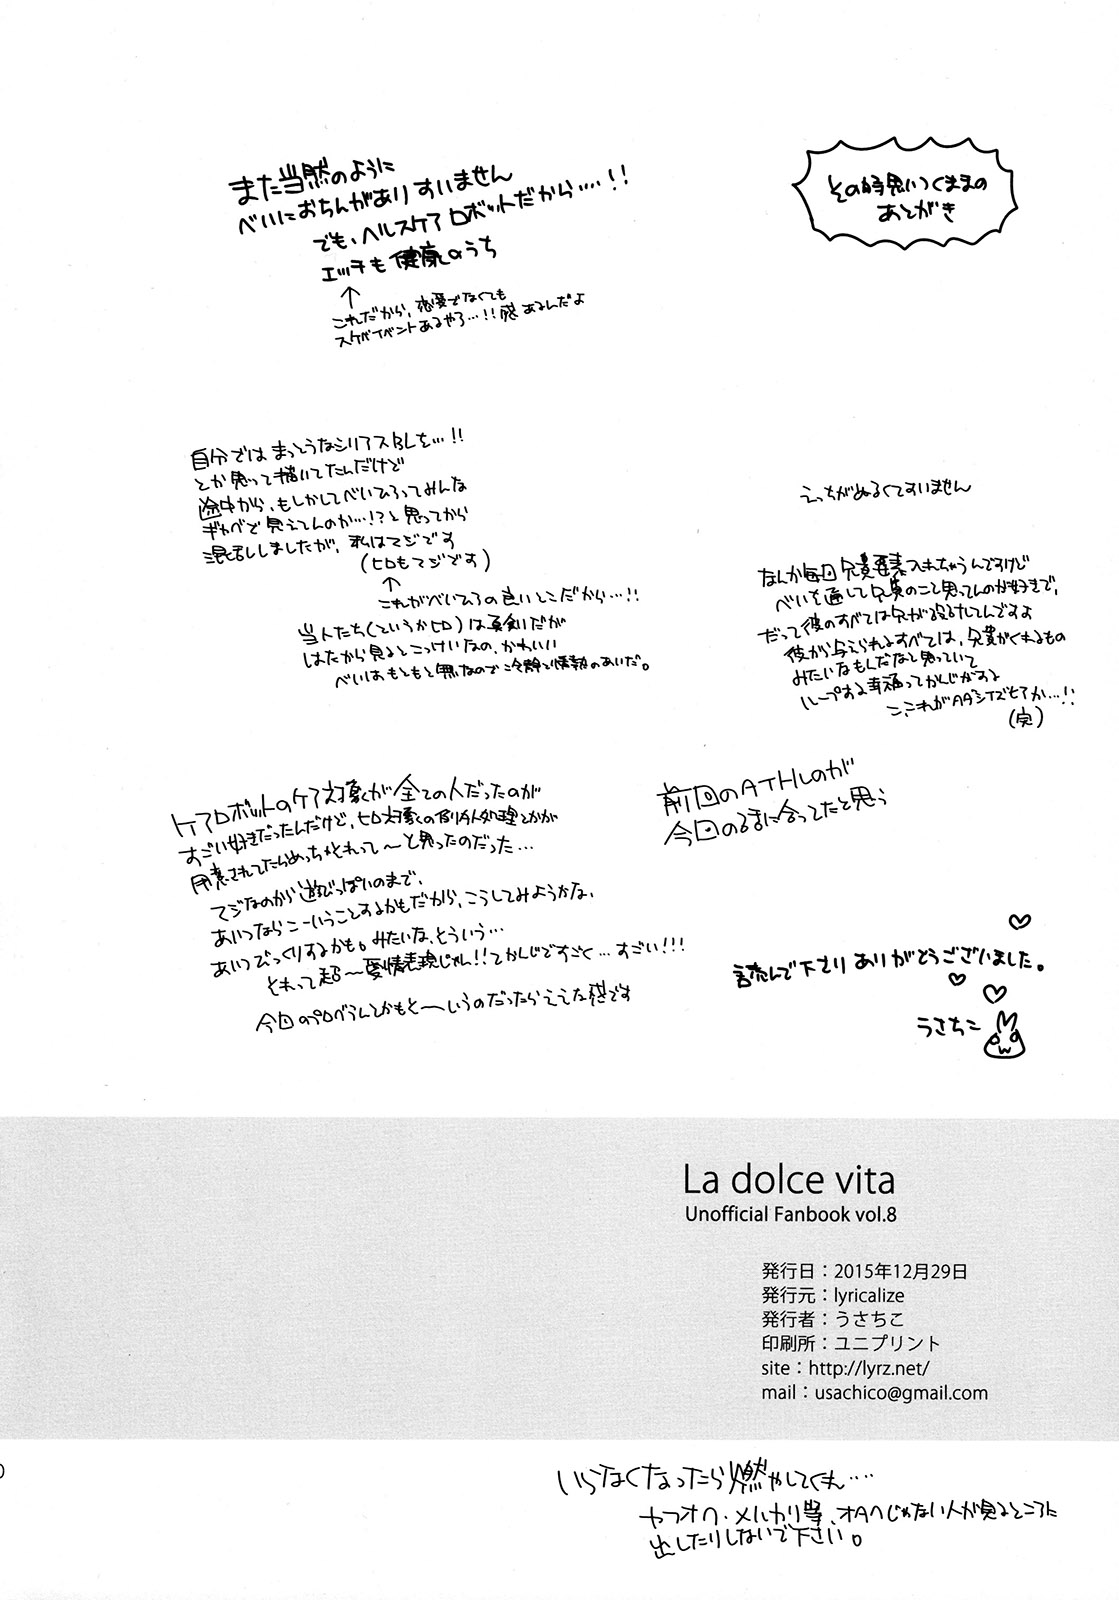 その時思いつくままの
あとがき
また当然のように
べいにおちんがありすいません
でも、ヘルスケアロボットだから…!!
エッチも健康のうち
↑
これだから、恋愛でなくても
スケベイベントあるやろ…!! 感あるんだよ
自分ではまっとうなシリアスBLを…!!
とか思って描いてたんだけど
途中から、もしかしてべいひろってみんな
ギャグで見えてんのか…!?と思ってから
混乱しましたが、私はマジです
(ヒロもマジです)
↑
これがべいひろの良いとこだから…!!
当人たち(というかヒロ)は真剣だが
はたから見るとこっけいなの、かわいい
べいはもともと無なので冷静と情熱のあいだ。
えっちがぬるくてすいません
なんか毎回兄貴要素入れちゃうんですけど
べいを通して兄貴のこと思ってんのが好きで、
だって彼のすべては兄が設計してんですよ
彼が与えられるすべては、兄貴がくれるもの
みたいなもんだなと思っていて
ループする幸福ってかんじがする
こ、これが
(完)
ケアロボットのケア対象が全ての人だったのが
すごい好きだったんだけど、ヒロ対象の処理とかが
用意されてたらめっちゃそれって〜と思ったのだった…
マジなのから遊びっぽいのまで、
あいつならこーいうことするかもだから、こうしてみようかな、
あいつびっくりするかも。みたいな、そういう…
それって超〜愛情表現じゃん!!てかんじですごく…すごい!!!
今回のプロぐらんとかもそーいうのだったらええな感です
前回のATHLのが
今回のに合ってたと思う
読んで下さりありがとうございました。
うさちこ
La dolce vita
Unofficial Fanbook vol.8
発行日：2015年12月29日
発行元：lyricalize
発行者：うさちこ
印刷所：ユニプリント
site：http://lyrz.net/
mail：usachico@gmail.com
いらなくなったら燃やしてくれ…
ヤフオク・メルカリ等、オタクじゃない人が見るところに
出したりしないで下さい。